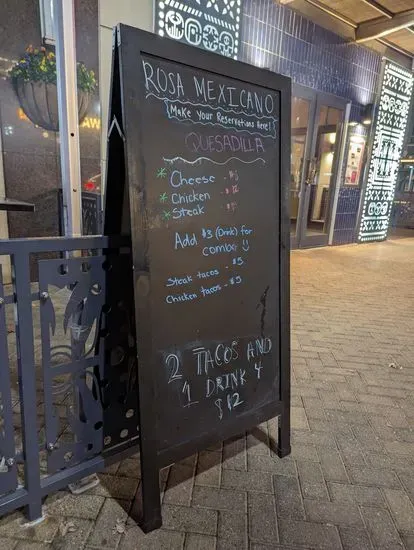 ROSA MEXICANO
Make Your Reservations Here!
QUESADILLA
* Cheese -
* Chicken -
* Steak -
Add $3 (Drink) for
combo
Steak tacos - $5
Chicken tacos - $5
2 TACOS AND
1 DRINK 4
$12